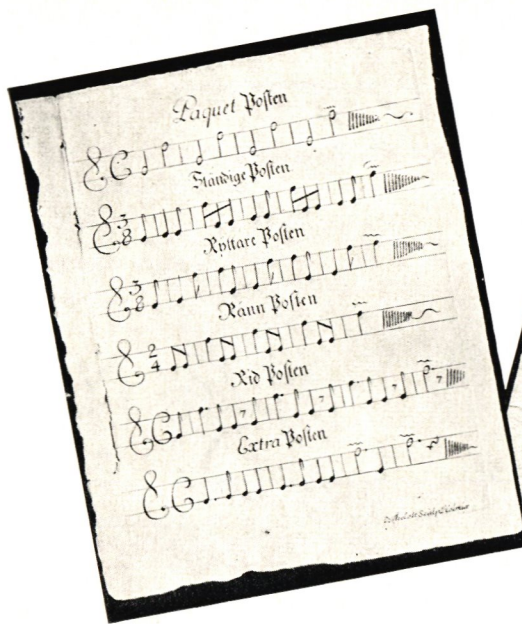 Paquet Posten
Ständige Posten
3 8
Ryttare Posten
3 8
Ränn Posten
2 4
Rid Posten
Extra Posten